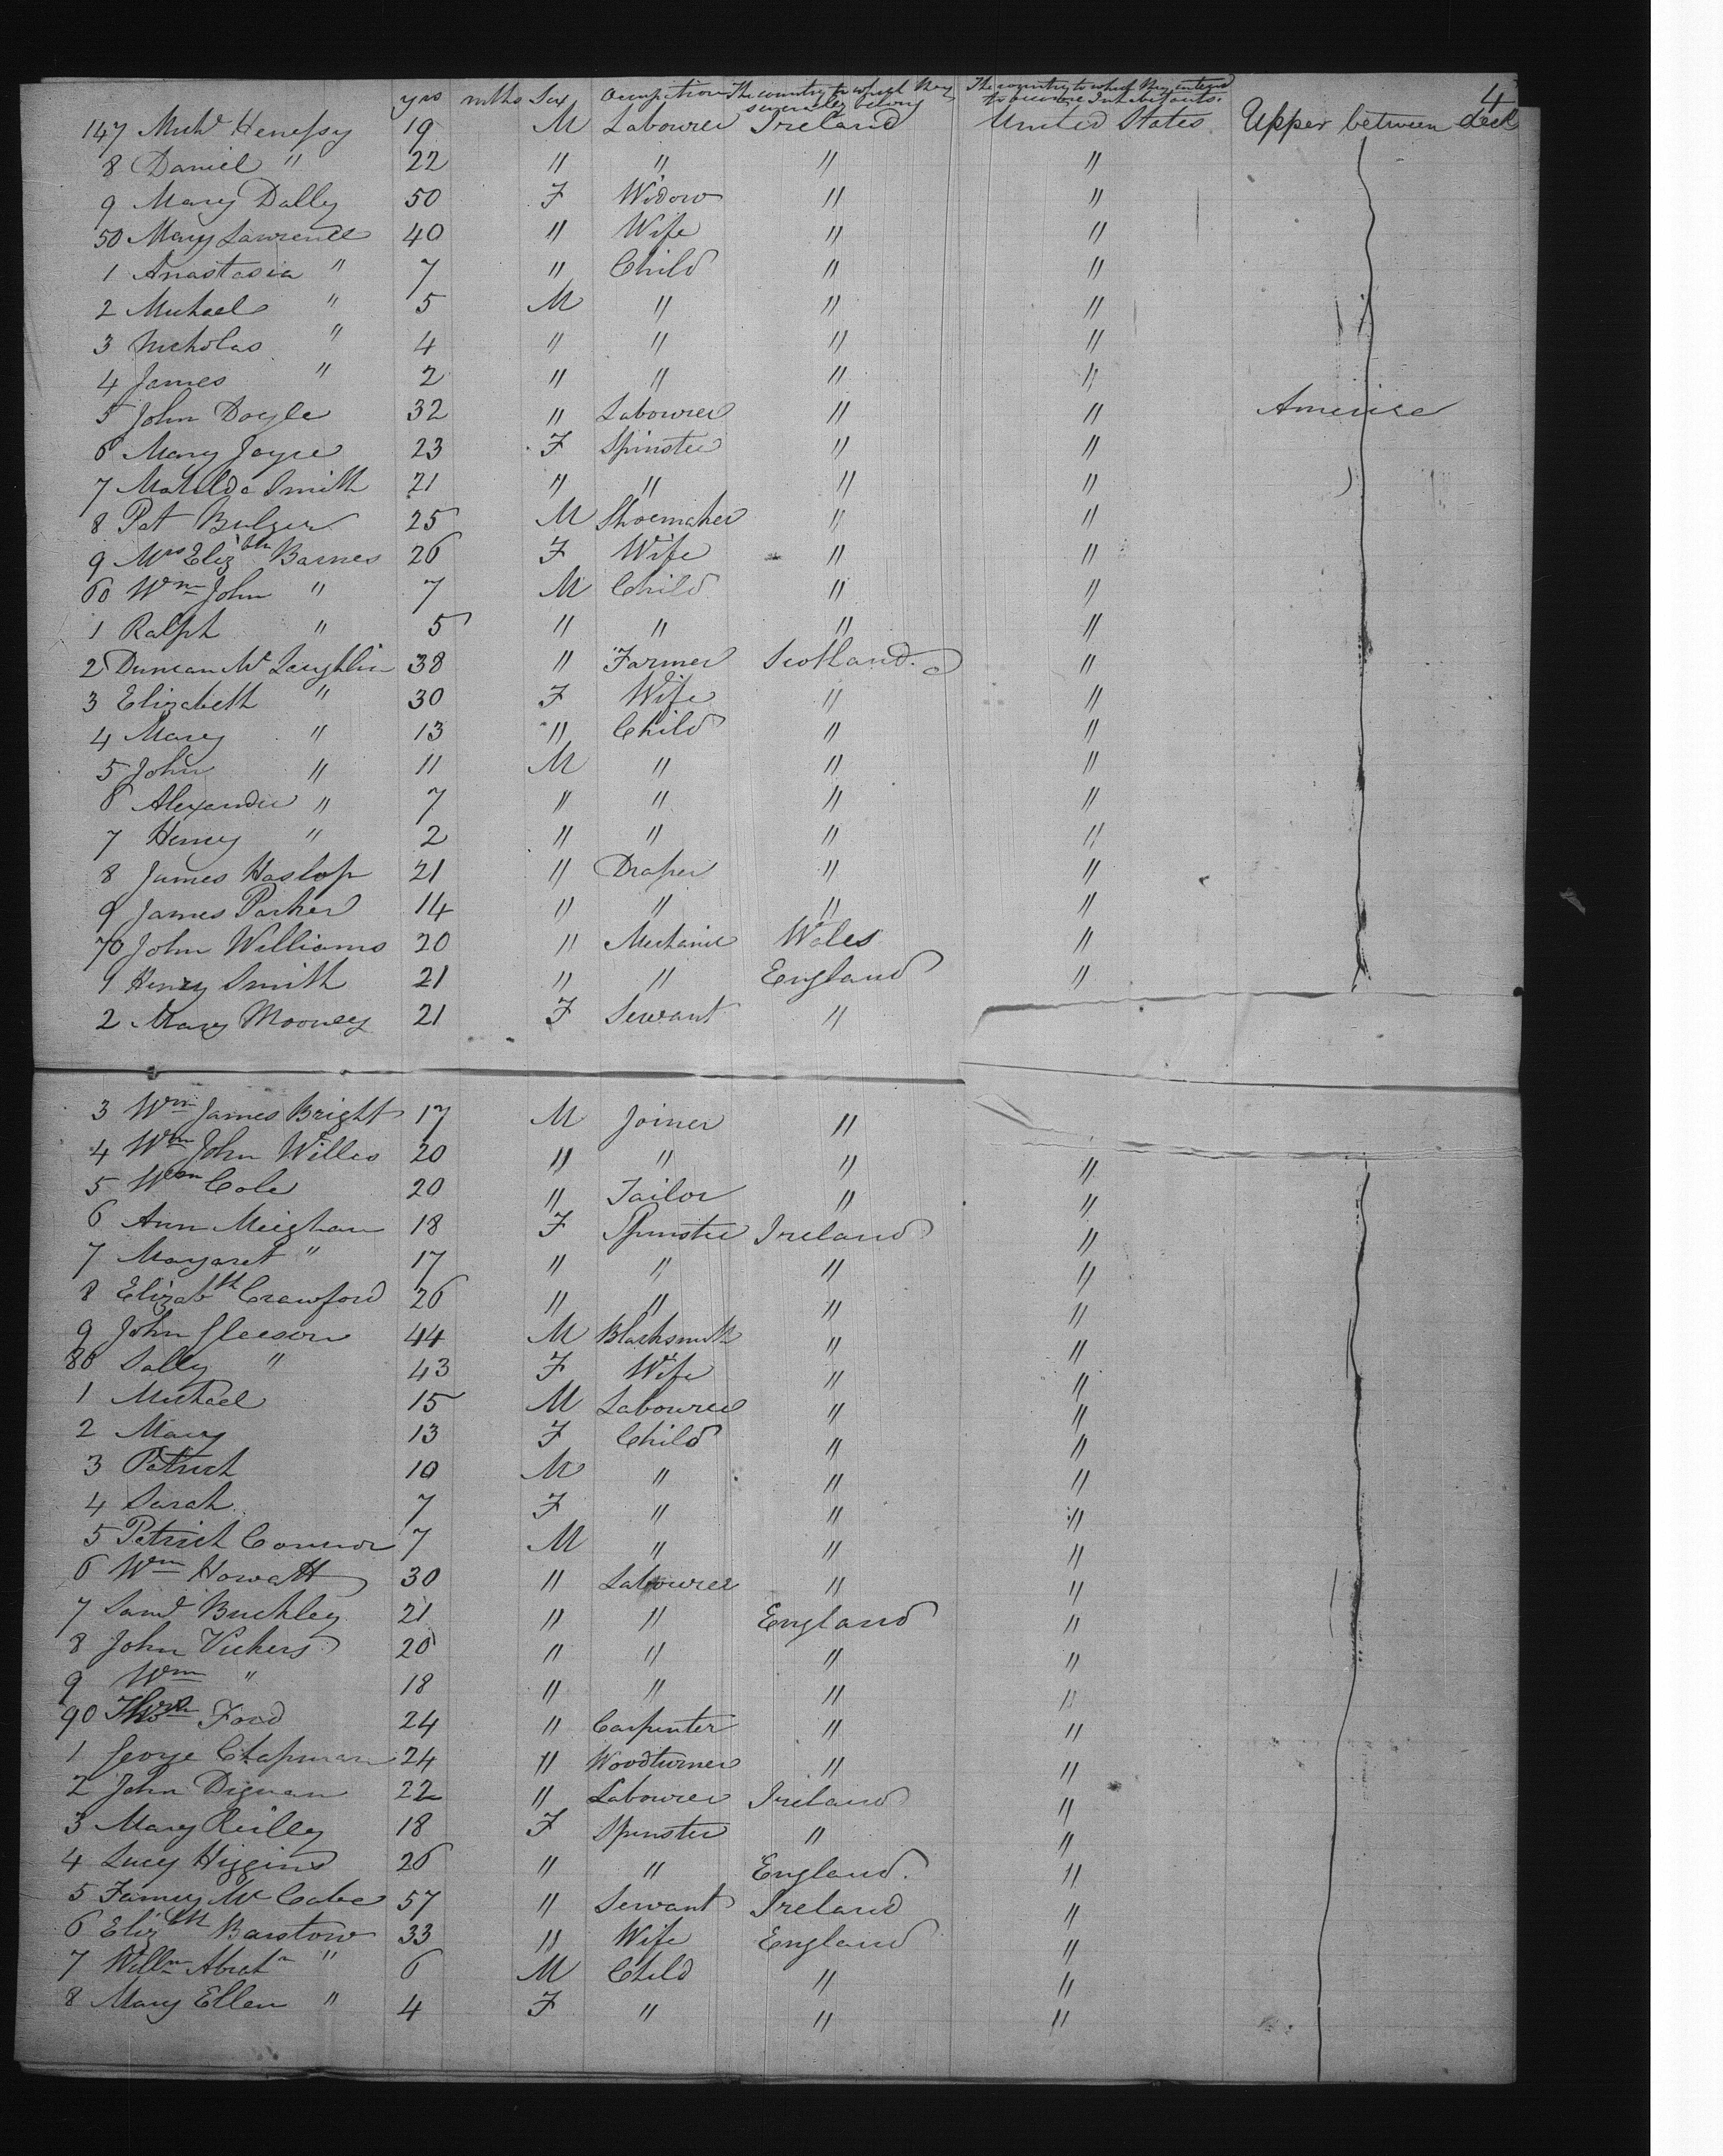 4
yrs mths Sex Occupation The country to which they severally belong The country to which they intend to become Inhabitants.
147 Michl Henessy 19 M Labourer Ireland United States Upper between deck
8 Daniel " 22 " " " "
9 Mary Dally 50 F Widow " "
50 Mary Lawrence 40 " Wife " "
1 Anastasia " 7 " Child " "
2 Michael " 5 M " " "
3 Nicholas " 4 " " " "
4 James " 2 " " " "
5 John Doyle 32 " Labourer " " America
6 Mary Joyce 23 F Spinster " "
7 Matilda Smith 21 " " " "
8 Pat Bulger 25 M Shoemaker " "
9 Mrs Elizbth Barnes 26 F Wife " "
60 Wm John " 7 M Child " "
1 Ralph " 5 " " " "
2 Duncan Mc Laughlin 38 " Farmer Scotland. "
3 Elizabeth " 30 F Wife " "
4 Mary " 13 " Child " "
5 John " 11 M " " "
6 Alexander " 7 " " " "
7 Henry " 2 " " " "
8 James Haslop 21 " Draper " "
9 James Parker 14 " " " "
70 John Williams 20 " Mechanic Wales "
1 Henry Smith 21 " " England "
2 Mary Mooney 21 F Servant "
3 Wm James Bright 17 M Joiner "
4 Wm John Willes 20 " " " "
5 Wm Cole 20 " Tailor " "
6 Ann Meighan 18 F Spinster Ireland "
7 Margaret " 17 " " " "
8 Elizabth Crawford 26 " " " "
9 John Gleeson 44 M Blacksmith " "
80 Sally " 43 F Wife " "
1 Michael 15 M Labourer " "
2 Mary 13 F Child " "
3 Patrick 10 M " " "
4 Sarah 7 F " " "
5 Patrick Connor 7 M " " "
6 Wm Howatt 30 " Labourer " "
7 Saml Buckley 21 " " England "
8 John Vickers 20 " " " "
9 Wm " 18 " " " "
90 Ford 24 " Carpenter " "
1 George Chapman 24 " Woodturner " "
2 John Dignan 22 " Labourer Ireland "
3 Mary Reilly 18 F Spinster " "
4 Lucy Higgins 26 " " England. "
5 Fanny Mc Cabe 57 " Servant Ireland "
6 Elizth Barstow 33 " Wife England "
7 Willm " 6 M Child " "
8 Mary Ellen " 4 F " " "